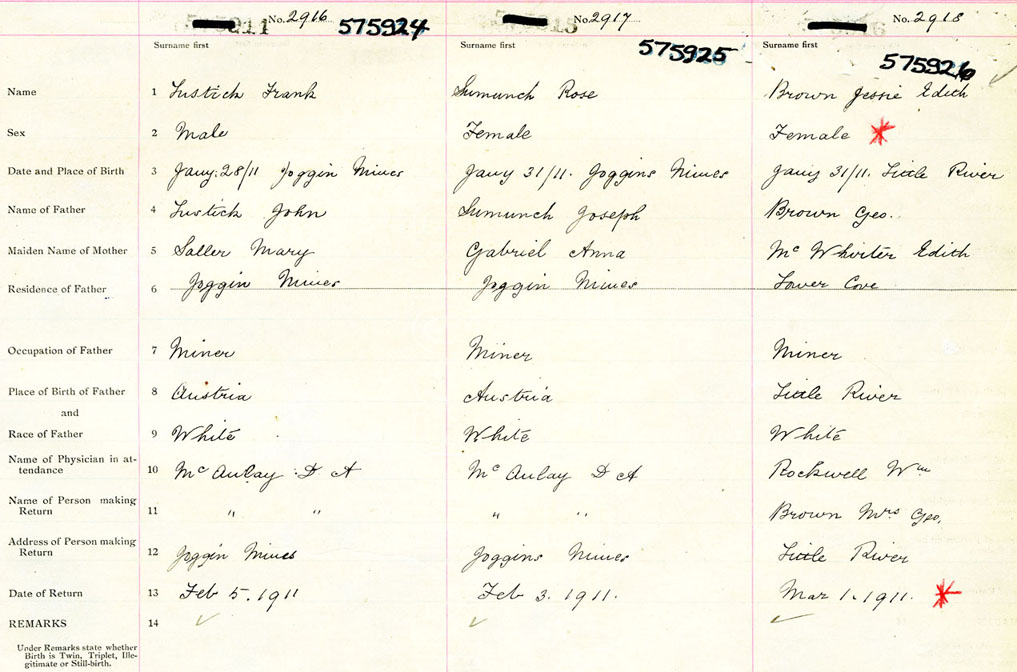 No. 2916 575924 No. 2917 575925 No. 2918 575926
Surname first Surname first Surname first
Name 1 Lustick Frank Sumunch Rose Brown Jessie Edith
Sex 2 Male Female Female
Date and Place of Birth 3 Jany: 28/11 Joggin Mines Jany 31/11. Joggins Mines Jany 31/11. Little River
Name of Father 4 Lustick John Sumunch Joseph Brown Geo.
Maiden Name of Mother 5 Saller Mary Gabriel Anna Mc Whirter Edith
Residence of Father 6 Joggin Mines Joggin Mines Lower Cove
Occupation of Father 7 Miner Miner Miner
Place of Birth of Father 8 Austria Austria Little River
and
Race of Father 9 White White White
Name of Physician in at-
tendance 10 Mc Aulay D A Mc Aulay D A Rockwell Wm
Name of Person making
Return 11 " " " " Brown Mrs Geo.
Address of Person making
Return 12 Joggin Mines Joggins Mines Little River
Date of Return 13 Feb 5. 1911 Feb 3. 1911. Mar 1. 1911.
REMARKS 14
Under Remarks state whether
Birth is Twin, Triplet, Ille-
gitimate or Still-birth.